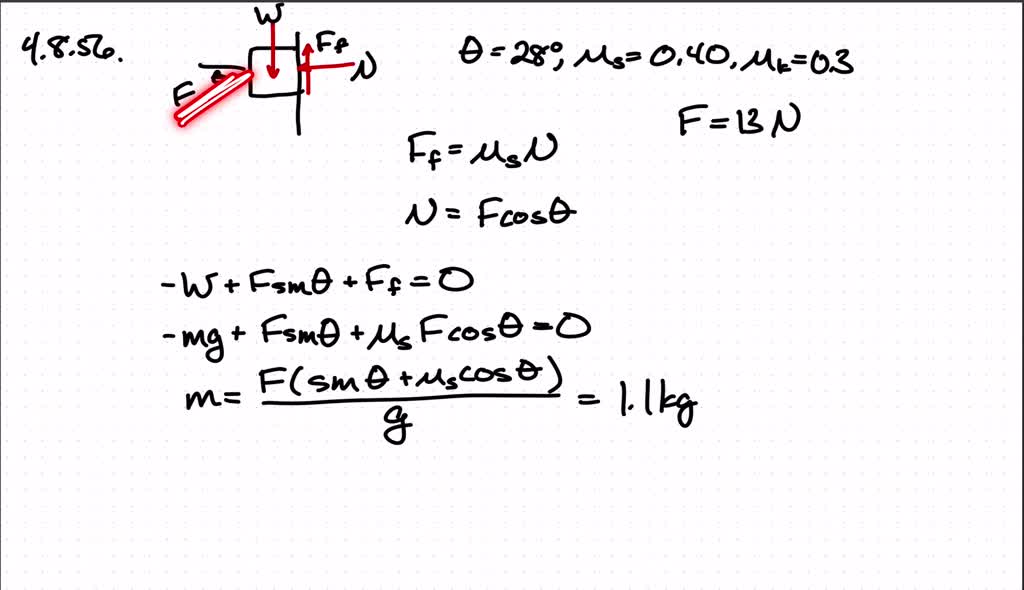 4.8.56.
W
Ff
N
F
θ
θ = 28°, μs = 0.40, μk = 0.3
F = 13 N
Ff = μsN
N = Fcosθ
-W + Fsinθ + Ff = 0
-mg + Fsinθ + μs Fcosθ = 0
m = F(sinθ + μscosθ) / g = 1.1kg